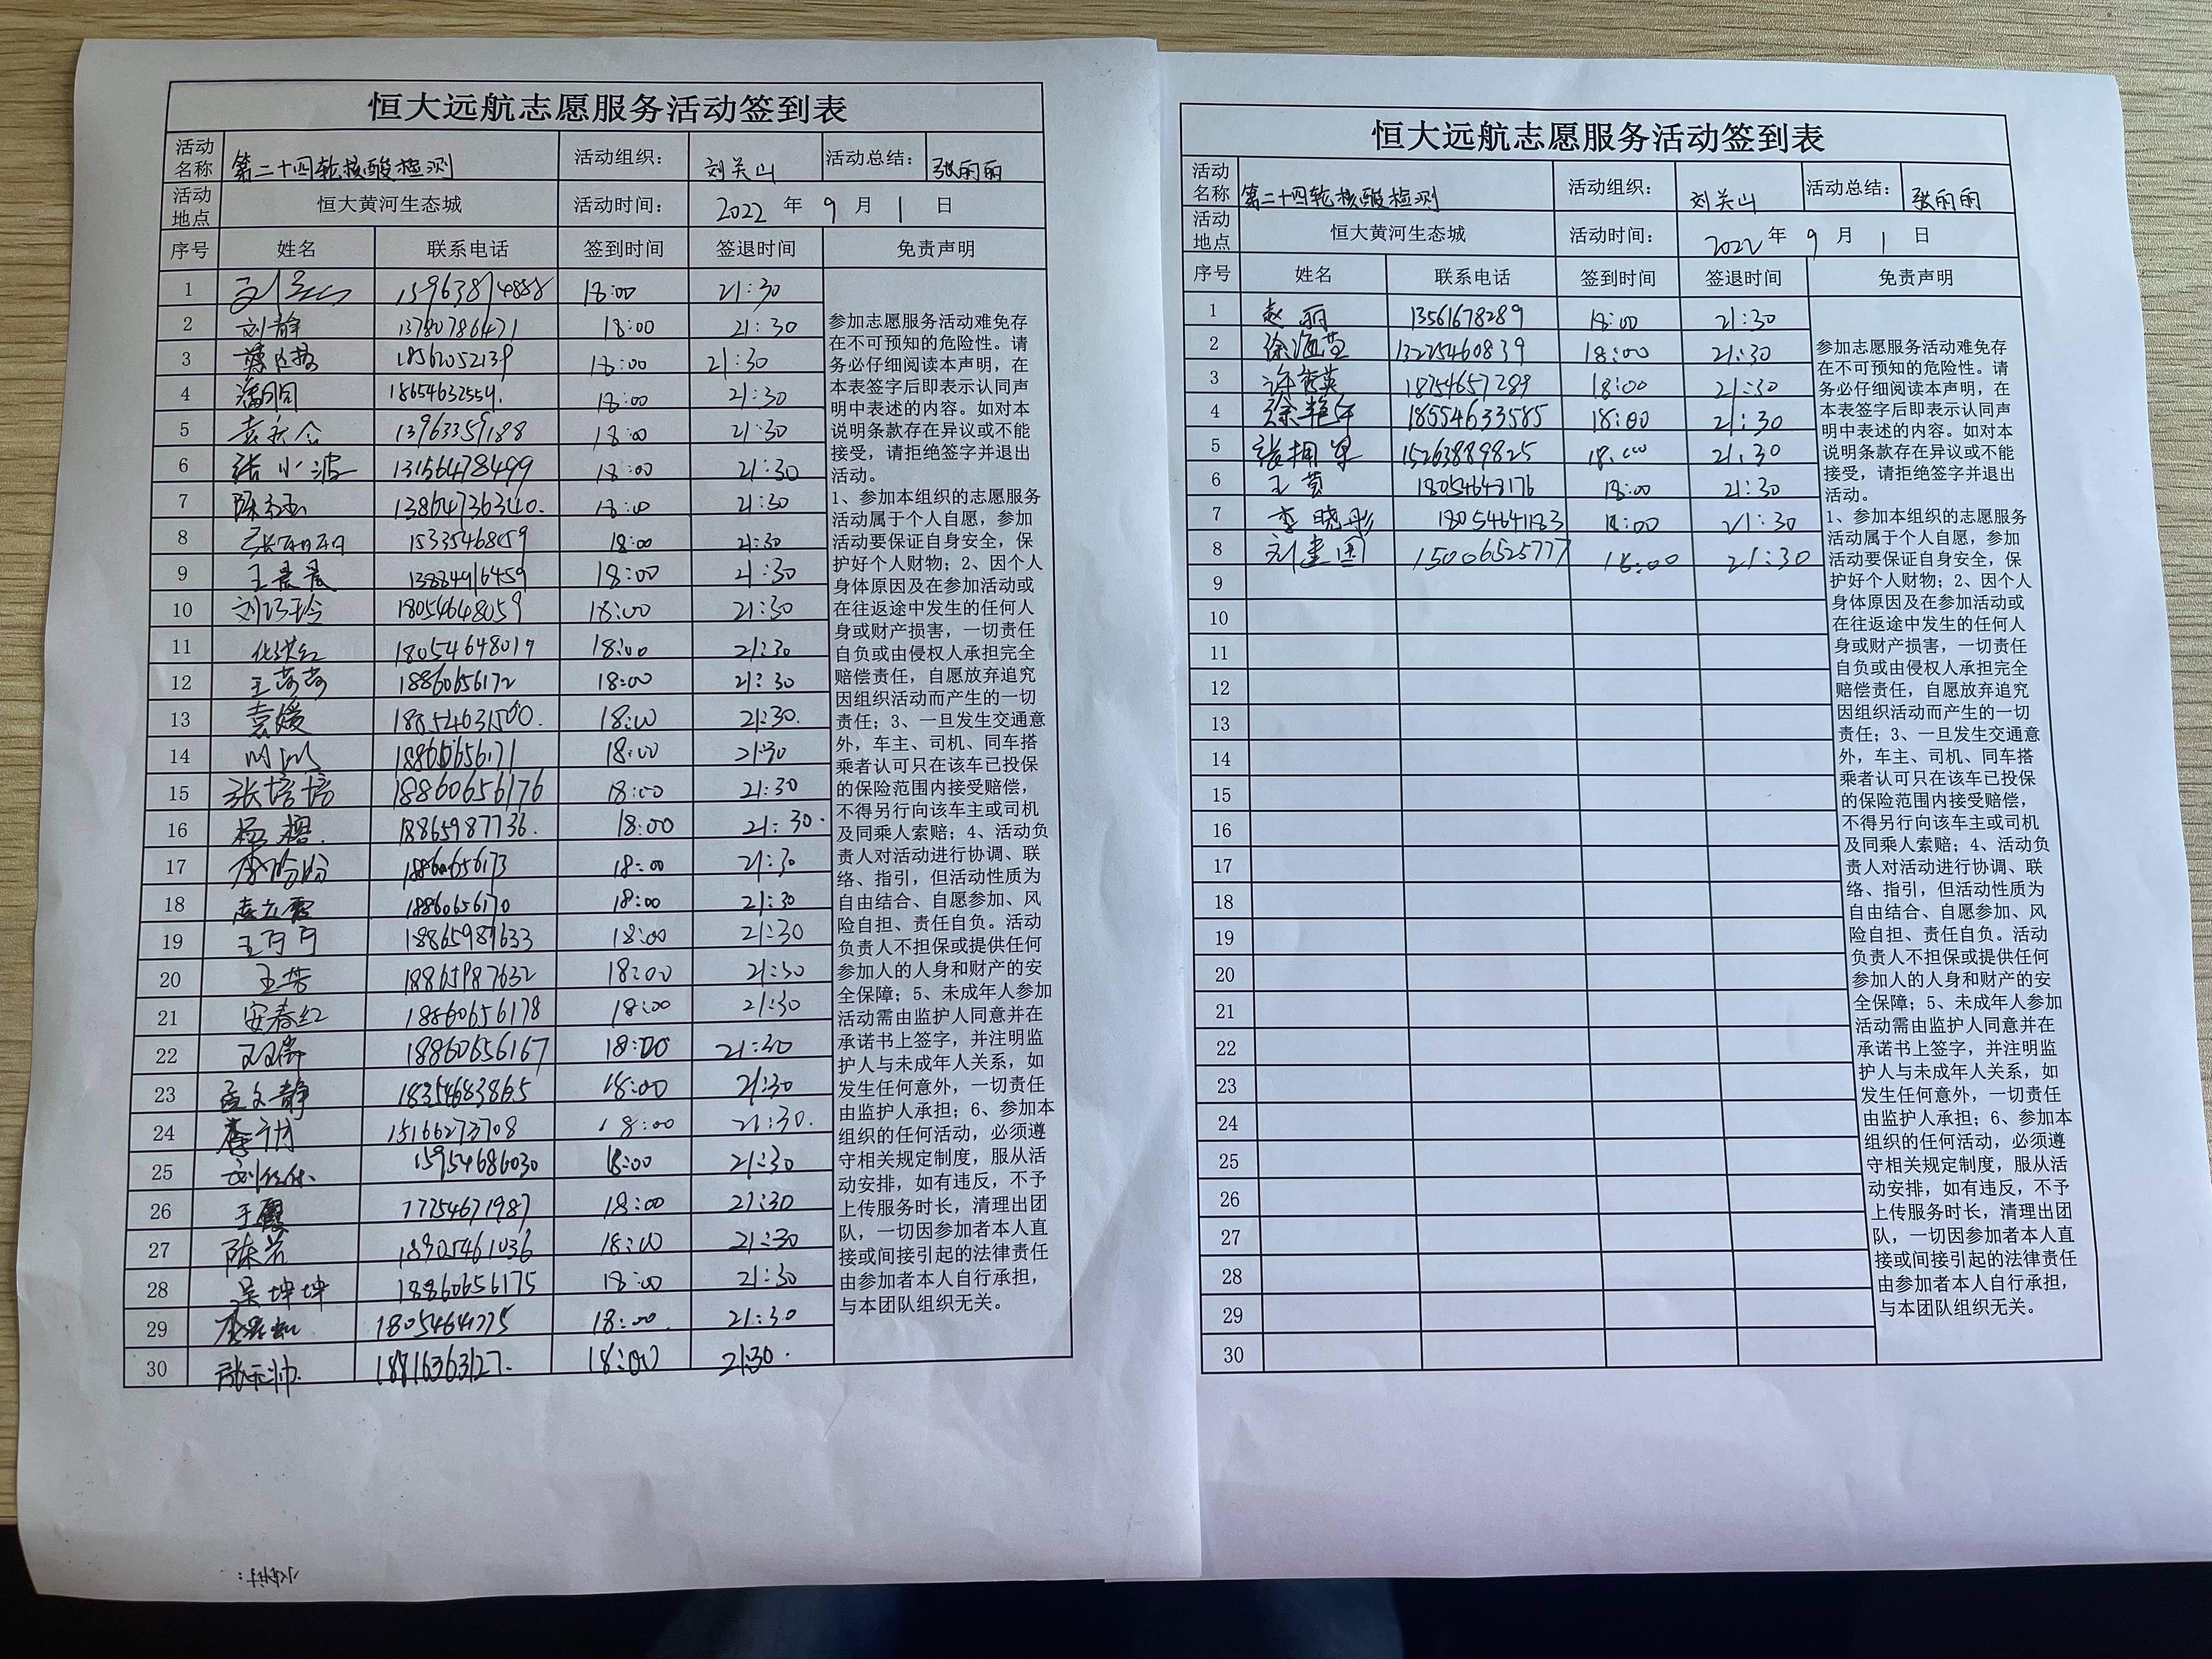 恒大远航志愿服务活动签到表
活动名称 第二十四轮核酸检测 活动组织： 刘关山 活动总结： 张丽丽
活动地点 恒大黄河生态城 活动时间： 2022 年 9 月 1 日
序号 姓名 联系电话 签到时间 签退时间 免责声明
1 18:00 21:30
2 刘静 13780786471 18:00 21:30
3 18562052139 18:00 21:30
4 潘明明 18654632554. 18:00 21:30
5 13963359188 18:00 21:30
6 张小波 13156478499 18:00 21:30
7 18:00 21:30
8 张丽丽 15335468059 18:00 21:30
9 王晨晨 13884916459 18:00 21:30
10 刘巧玲 18054648059 18:00 21:30
11 18054648019 18:00 21:30
12 18860656172 18:00 21:30
13 袁媛 18:00 21:30.
14 18860656171 18:00 21:30
15 张培培 18860656176 18:00 21:30
16 18865987736. 18:00 21:30.
17 李盼盼 18860656173 18:00 21:30
18 18860656170 18:00 21:30
19 18865987633 18:00 21:30
20 王芳 18865987632 18:00 21:30
21 安春红 18860656178 18:00 21:30
22 18860656167 18:00 21:30
23 孟文静 18354683865 18:00 21:30
24 15166273708 18:00 21:30.
25 15954686030 18:00 21:30
26 王霞 17754671987 18:00 21:30
27 18905461036 18:00 21:30
28 吴坤坤 18860656175 18:00 21:30
29 18:00. 21:30
30 18816363127. 18:00 21:30.
参加志愿服务活动难免存
在不可预知的危险性。请
务必仔细阅读本声明，在
本表签字后即表示认同声
明中表述的内容。如对本
说明条款存在异议或不能
接受，请拒绝签字并退出
活动。
1、参加本组织的志愿服务
活动属于个人自愿，参加
活动要保证自身安全，保
护好个人财物；2、因个人
身体原因及在参加活动或
在往返途中发生的任何人
身或财产损害，一切责任
自负或由侵权人承担完全
赔偿责任，自愿放弃追究
因组织活动而产生的一切
责任；3、一旦发生交通意
外，车主、司机、同车搭
乘者认可只在该车已投保
的保险范围内接受赔偿，
不得另行向该车主或司机
及同乘人索赔；4、活动负
责人对活动进行协调、联
络、指引，但活动性质为
自由结合、自愿参加、风
险自担、责任自负。活动
负责人不担保或提供任何
参加人的人身和财产的安
全保障；5、未成年人参加
活动需由监护人同意并在
承诺书上签字，并注明监
护人与未成年人关系，如
发生任何意外，一切责任
由监护人承担；6、参加本
组织的任何活动，必须遵
守相关规定制度，服从活
动安排，如有违反，不予
上传服务时长，清理出团
队，一切因参加者本人直
接或间接引起的法律责任
由参加者本人自行承担，
与本团队组织无关。
恒大远航志愿服务活动签到表
活动名称 第二十四轮核酸检测 活动组织： 刘关山 活动总结： 张丽丽
活动地点 恒大黄河生态城 活动时间： 2022 年 9 月 1 日
序号 姓名 联系电话 签到时间 签退时间 免责声明
1 赵丽 13561678289 18:00 21:30
2 13225460839 18:00 21:30
3 18754657289 18:00 21:30
4 18554633585 18:00 21:30
5 15263889825 18:00 21:30
6 18:00 21:30
7 李晓彤 18054641183 18:00 21:30
8 刘建国 15006525777 18:00 21:30
9
10
11
12
13
14
15
16
17
18
19
20
21
22
23
24
25
26
27
28
29
30
参加志愿服务活动难免存
在不可预知的危险性。请
务必仔细阅读本声明，在
本表签字后即表示认同声
明中表述的内容。如对本
说明条款存在异议或不能
接受，请拒绝签字并退出
活动。
1、参加本组织的志愿服务
活动属于个人自愿，参加
活动要保证自身安全，保
护好个人财物；2、因个人
身体原因及在参加活动或
在往返途中发生的任何人
身或财产损害，一切责任
自负或由侵权人承担完全
赔偿责任，自愿放弃追究
因组织活动而产生的一切
责任；3、一旦发生交通意
外，车主、司机、同车搭
乘者认可只在该车已投保
的保险范围内接受赔偿，
不得另行向该车主或司机
及同乘人索赔；4、活动负
责人对活动进行协调、联
络、指引，但活动性质为
自由结合、自愿参加、风
险自担、责任自负。活动
负责人不担保或提供任何
参加人的人身和财产的安
全保障；5、未成年人参加
活动需由监护人同意并在
承诺书上签字，并注明监
护人与未成年人关系，如
发生任何意外，一切责任
由监护人承担；6、参加本
组织的任何活动，必须遵
守相关规定制度，服从活
动安排，如有违反，不予
上传服务时长，清理出团
队，一切因参加者本人直
接或间接引起的法律责任
由参加者本人自行承担，
与本团队组织无关。